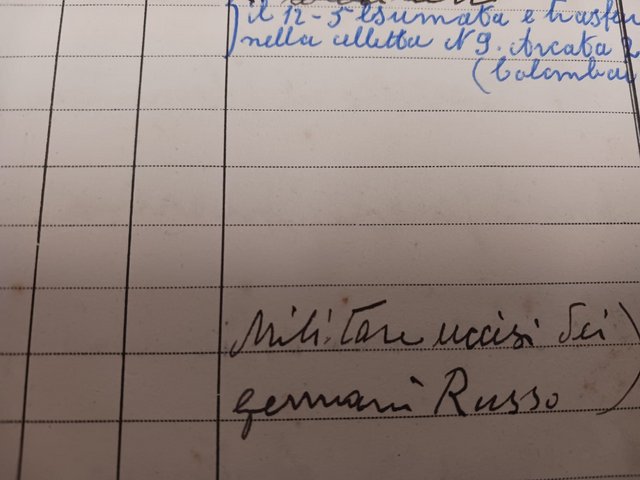 il 12-5 Esumata e trasfer
nella celletta N 9. Arcata 2
(Colombai
Militare uccisi dei)
germani Russo